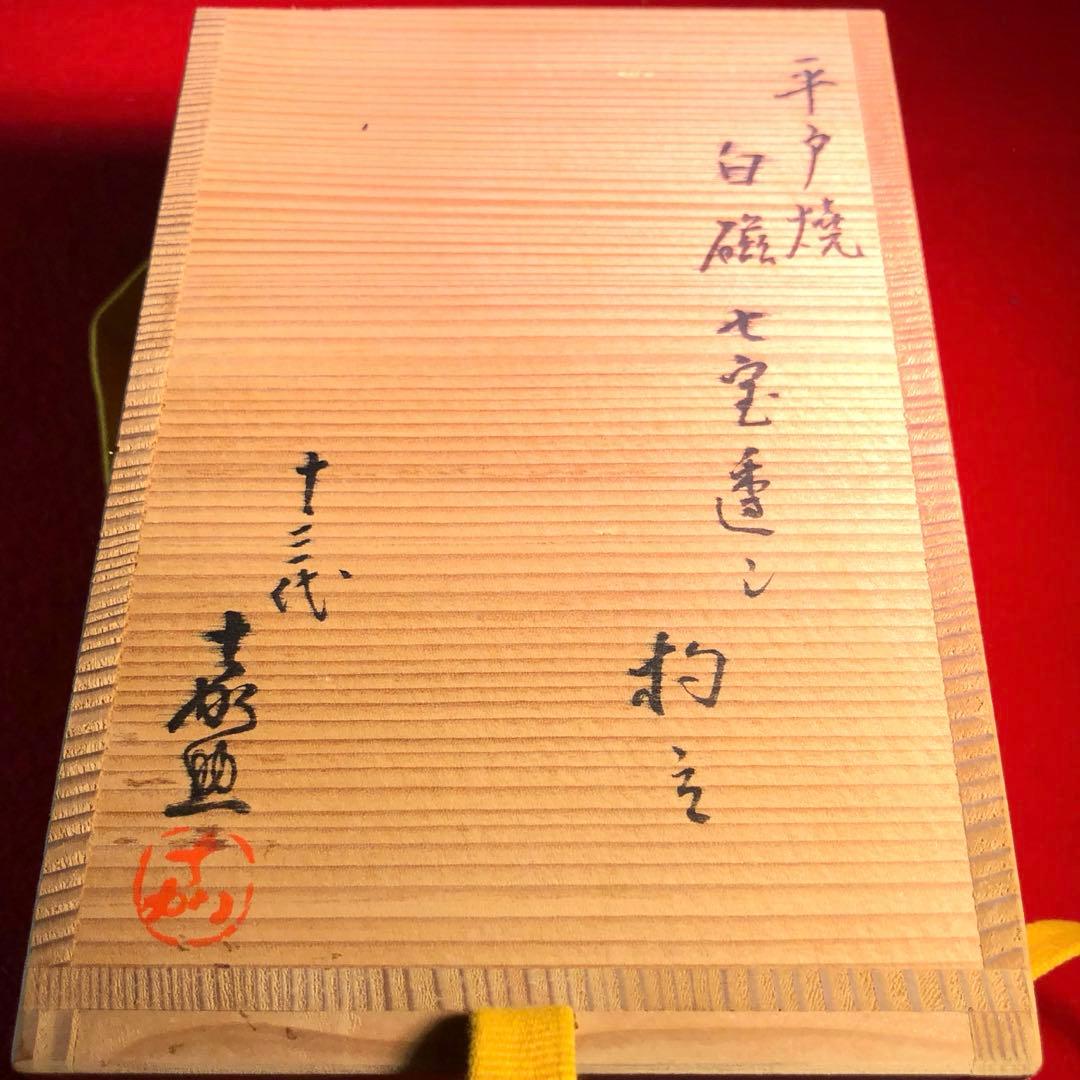 平戸焼
白磁 七宝透し
杓立
十三代